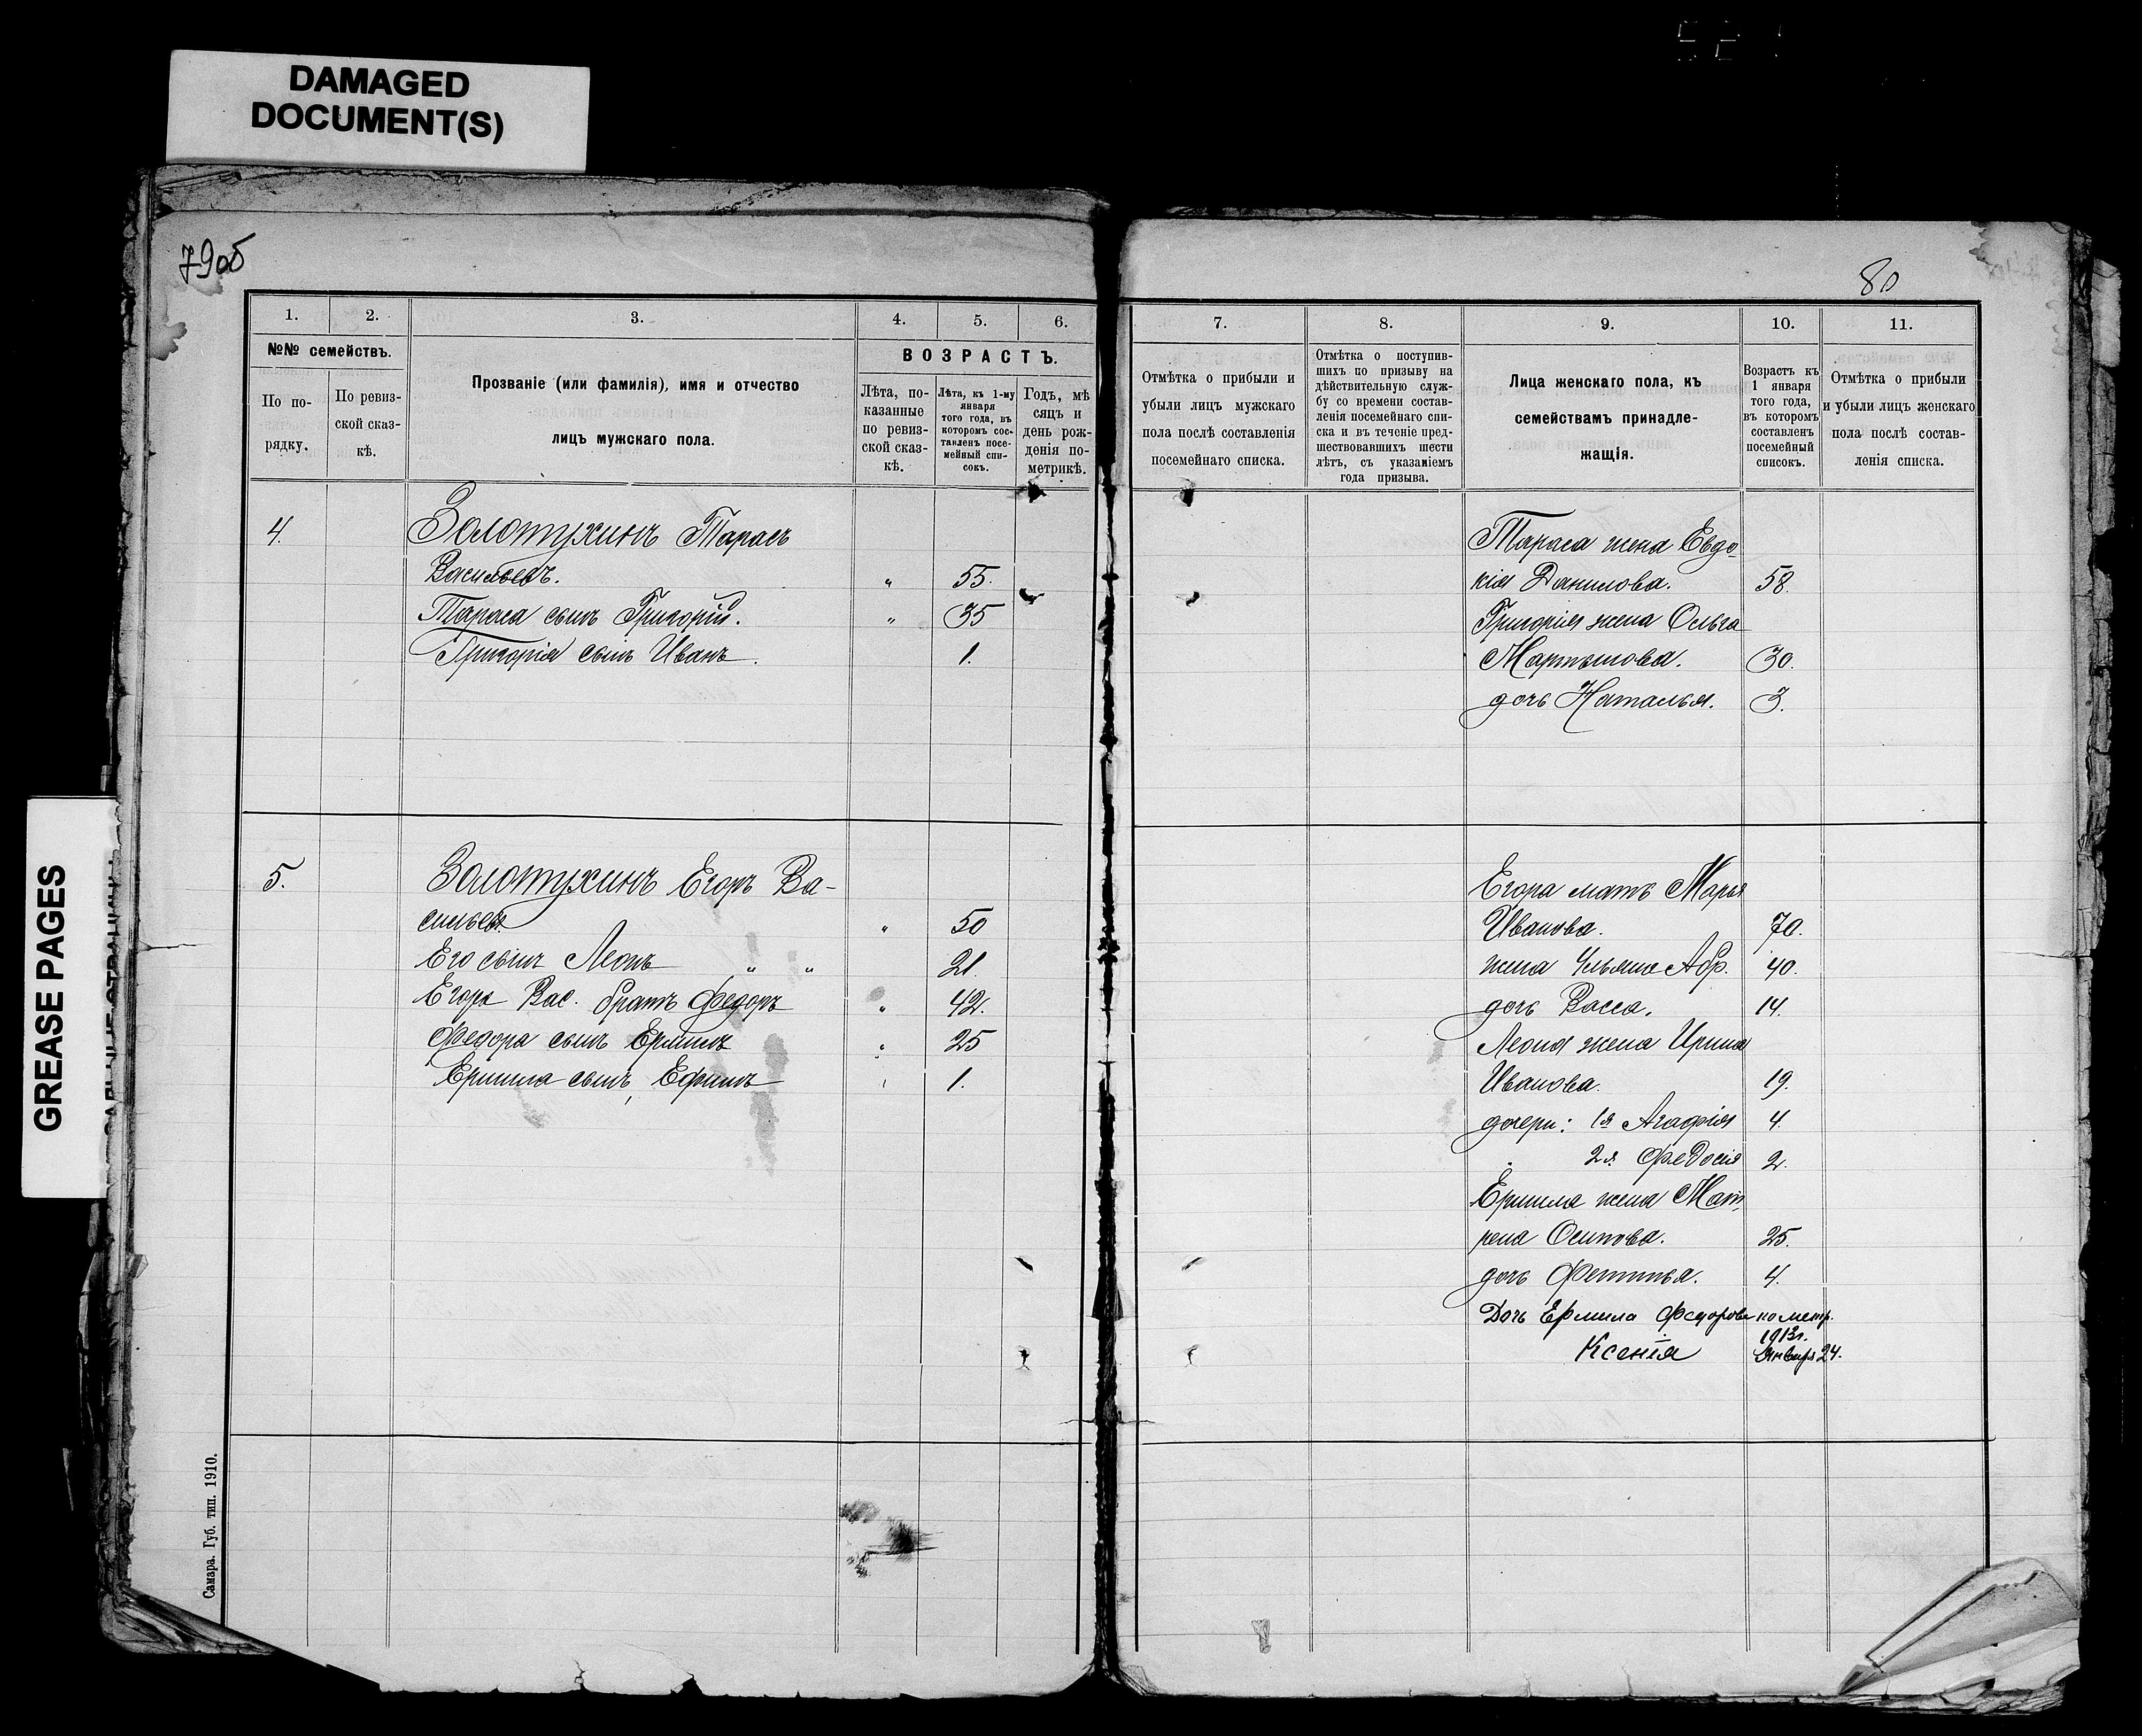 DAMAGED
DOCUMENT(S)
GREASE PAGES
79об
80
1. 2. 3. 4. 5. 6.
№№ семействъ.
По по-
рядку.
По ревиз-
ской сказ-
кѣ.
Прозваніе (или фамилія), имя и отчество
лицъ мужскаго пола.
ВОЗРАСТЪ.
Лѣта, по-
казанные
по ревиз-
ской сказ-
кѣ.
Лѣта, къ 1-му
января
того года, въ
которомъ сос-
тавленъ посе-
мейный спи-
сокъ.
Годъ, мѣ
сяцъ и
день рож-
денія по-
метрикѣ.
4. Золотухинъ Тарасъ
Васильевъ. " 55.
Тараса сынъ Григорій. " 35
Григорія сынъ Иванъ. 1.
5. Золотухинъ Егоръ Ва-
сильев. " 50
Его сынъ Леонъ " " 21.
Егора Вас. братъ Федоръ " 42.
Федора сынъ Ермилъ " 25
Ермила сынъ Ефимъ " 1.
Самара. Губ. тип. 1910.
7. 8. 9. 10. 11.
Отмѣтка о прибыли и
убыли лицъ мужскаго
пола послѣ составленія
посемейнаго списка.
Отмѣтка о поступив-
шихъ по призыву на
дѣйствительную служ-
бу со времени состав-
ленія посемейнаго спи-
ска и въ теченіе пред-
шествовавшихъ шести
лѣтъ, съ указаніемъ
года призыва.
Лица женскаго пола, къ
семействамъ принадле-
жащія.
Возрастъ къ
1 января
того года,
въ которомъ
составленъ
посемейный
списокъ.
Отмѣтка о прибыли
и убыли лицъ женскаго
пола послѣ состав-
ленія списка.
Тараса жена Евдо-
кія Данилова. 58.
Григорія жена Ольга
Мартынова. 30.
дочь Наталья. 3.
Егора мать Марья
Иванова. 70.
жена Ульяна Абр. 40.
дочь Васса. 14.
Леона жена Ирина
Иванова. 19.
дочери: 1я Агафія 4.
2я Федосія 2.
Ермила жена Мат-
рена Осипова. 25.
дочь Фетинья. 4.
Дочь Ермила Федорова по метр.
1913г.
Ксенія Января 24.